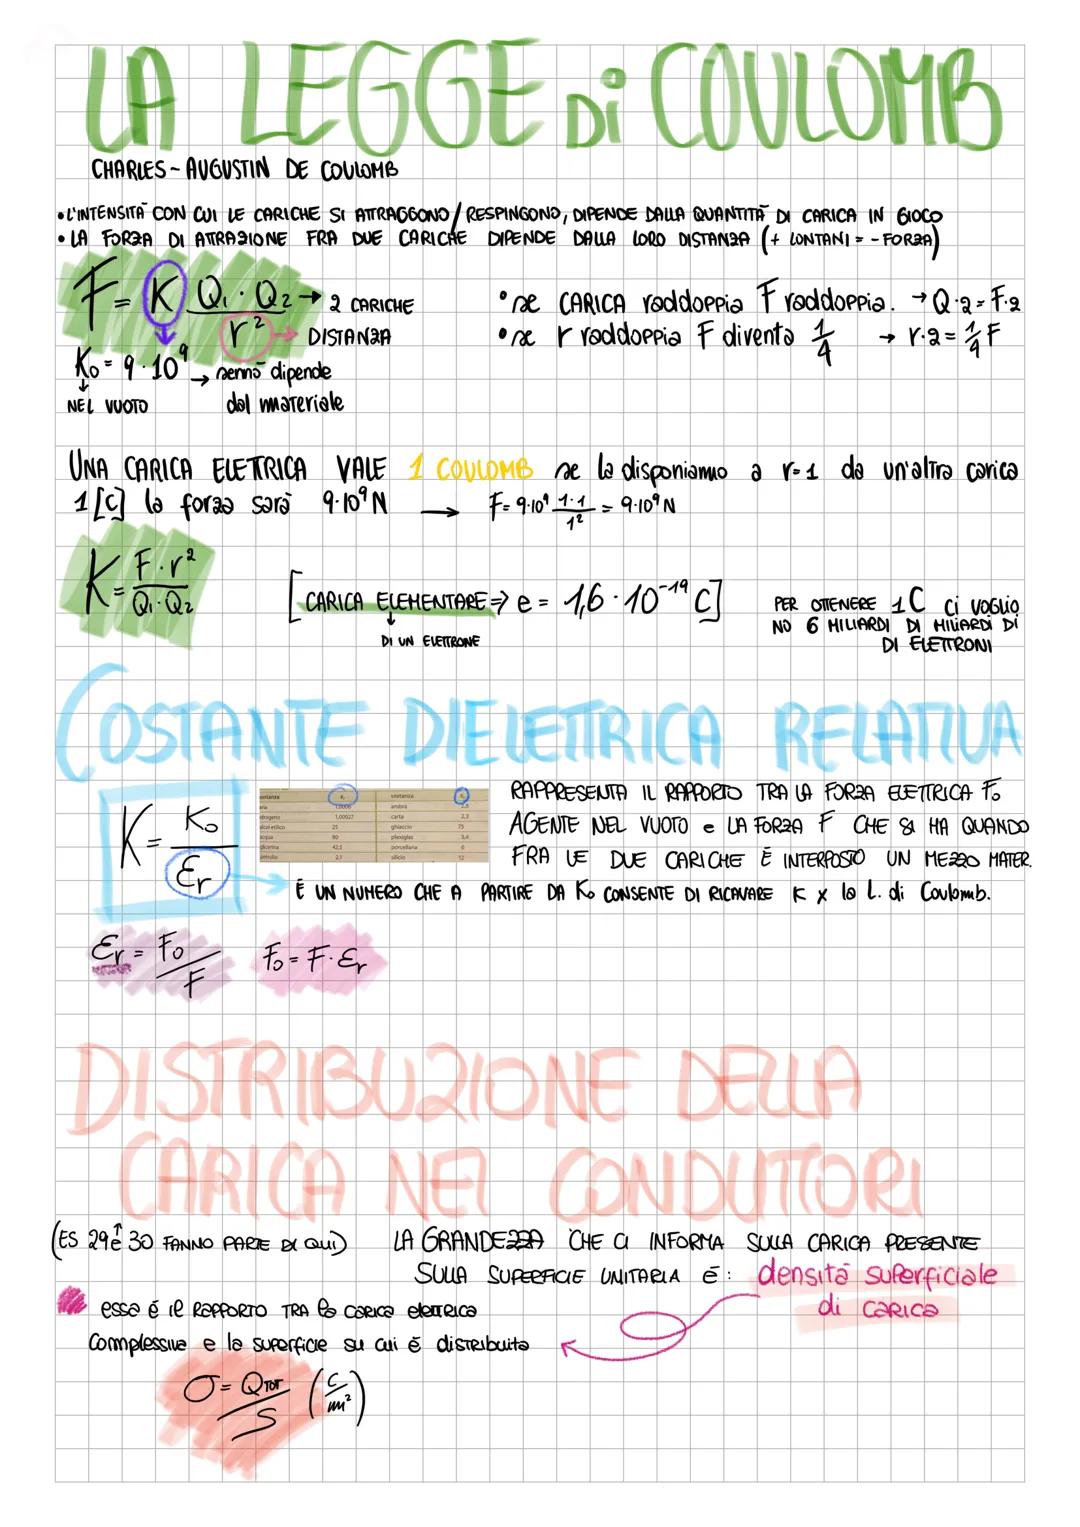 LA LEGGE Di COULOMB
CHARLES-AUGUSTIN DE COULOMB
• L'INTENSITÀ CON CUI LE CARICHE SI ATTRAGGONO/RESPINGONO, DIPENDE DALLA QUANTITÀ DI CARICA IN GIOCO
• LA FORZA DI ATTRAZIONE FRA DUE CARICHE DIPENDE DALLA LORO DISTANZA (+ LONTANI = - FORZA)
F = K Q₁ · Q₂ / r² → 2 CARICHE
→ DISTANZA
K₀ = 9·10⁹ → sennò dipende dal materiale
NEL VUOTO
• se CARICA raddoppia F raddoppia. → Q·2 = F·2
• se r raddoppia F diventa 1/4 → r·2 = 1/4 F
UNA CARICA ELETTRICA VALE 1 COULOMB se la disponiamo a r=1 da un'altra carica
1[C] la forza sarà 9·10⁹ N → F = 9·10⁹ 1·1/1² = 9·10⁹ N
K = F·r² / Q₁·Q₂
[CARICA ELEMENTARE ⇒ e = 1,6·10⁻¹⁹ C]
DI UN ELETTRONE
PER OTTENERE 1C ci VOGLIO
NO 6 MILIARDI DI MILIARDI DI
DI ELETTRONI
COSTANTE DIELETTRICA RELATIVA
K = K₀ / εr
sostanza εr sostanza εr
aria 1,0006 ambra 2,8
idrogeno 1,00027 carta 2,3
alcol etilico 25 ghiaccio 75
acqua 80 plexiglas 3,4
glicerina 42,5 porcellana 6
petrolio 2,1 silicio 12
RAPPRESENTA IL RAPPORTO TRA LA FORZA ELETTRICA F₀
AGENTE NEL VUOTO e LA FORZA F CHE SI HA QUANDO
FRA LE DUE CARICHE È INTERPOSTO UN MEZZO MATER.
È UN NUMERO CHE A PARTIRE DA K₀ CONSENTE DI RICAVARE K x la L. di Coulomb.
εr = F₀ / F
F₀ = F·εr
DISTRIBUZIONE DELLA
CARICA NEI CONDUTTORI
(ES 29 e 30 FANNO PARTE DI QUI)
LA GRANDEZZA CHE CI INFORMA SULLA CARICA PRESENTE
SULLA SUPERFICIE UNITARIA È: densità superficiale
di CARICA
essa è il RAPPORTO TRA la carica elettrica
complessiva e la superficie su cui è distribuita
σ = QTOT / S (C/m²)